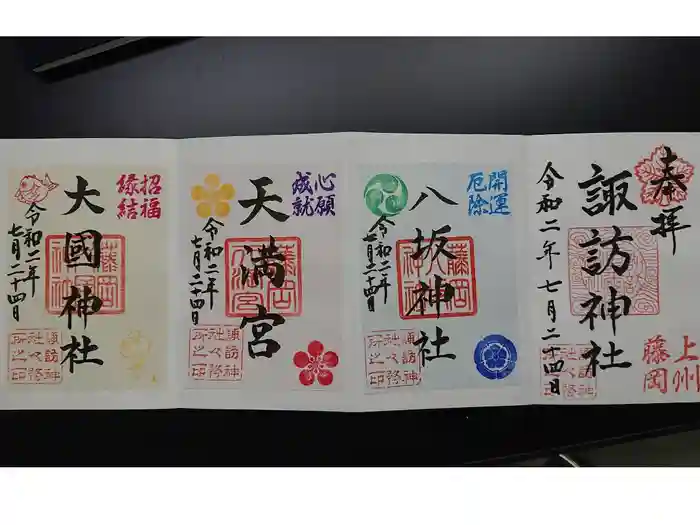 奉拝
諏訪神社
令和二年七月二十四日
上州
藤岡
開運
厄除
八坂神社
令和二年
七月二十四日
藤岡
諏訪神
社々務
所之印
心願
成就
天満宮
令和二年
七月二十四日
藤岡
天満宮
諏訪神
社々務
所之印
招福
縁結
大國神社
令和二年
七月二十四日
藤岡
諏訪神
社々務
所之印